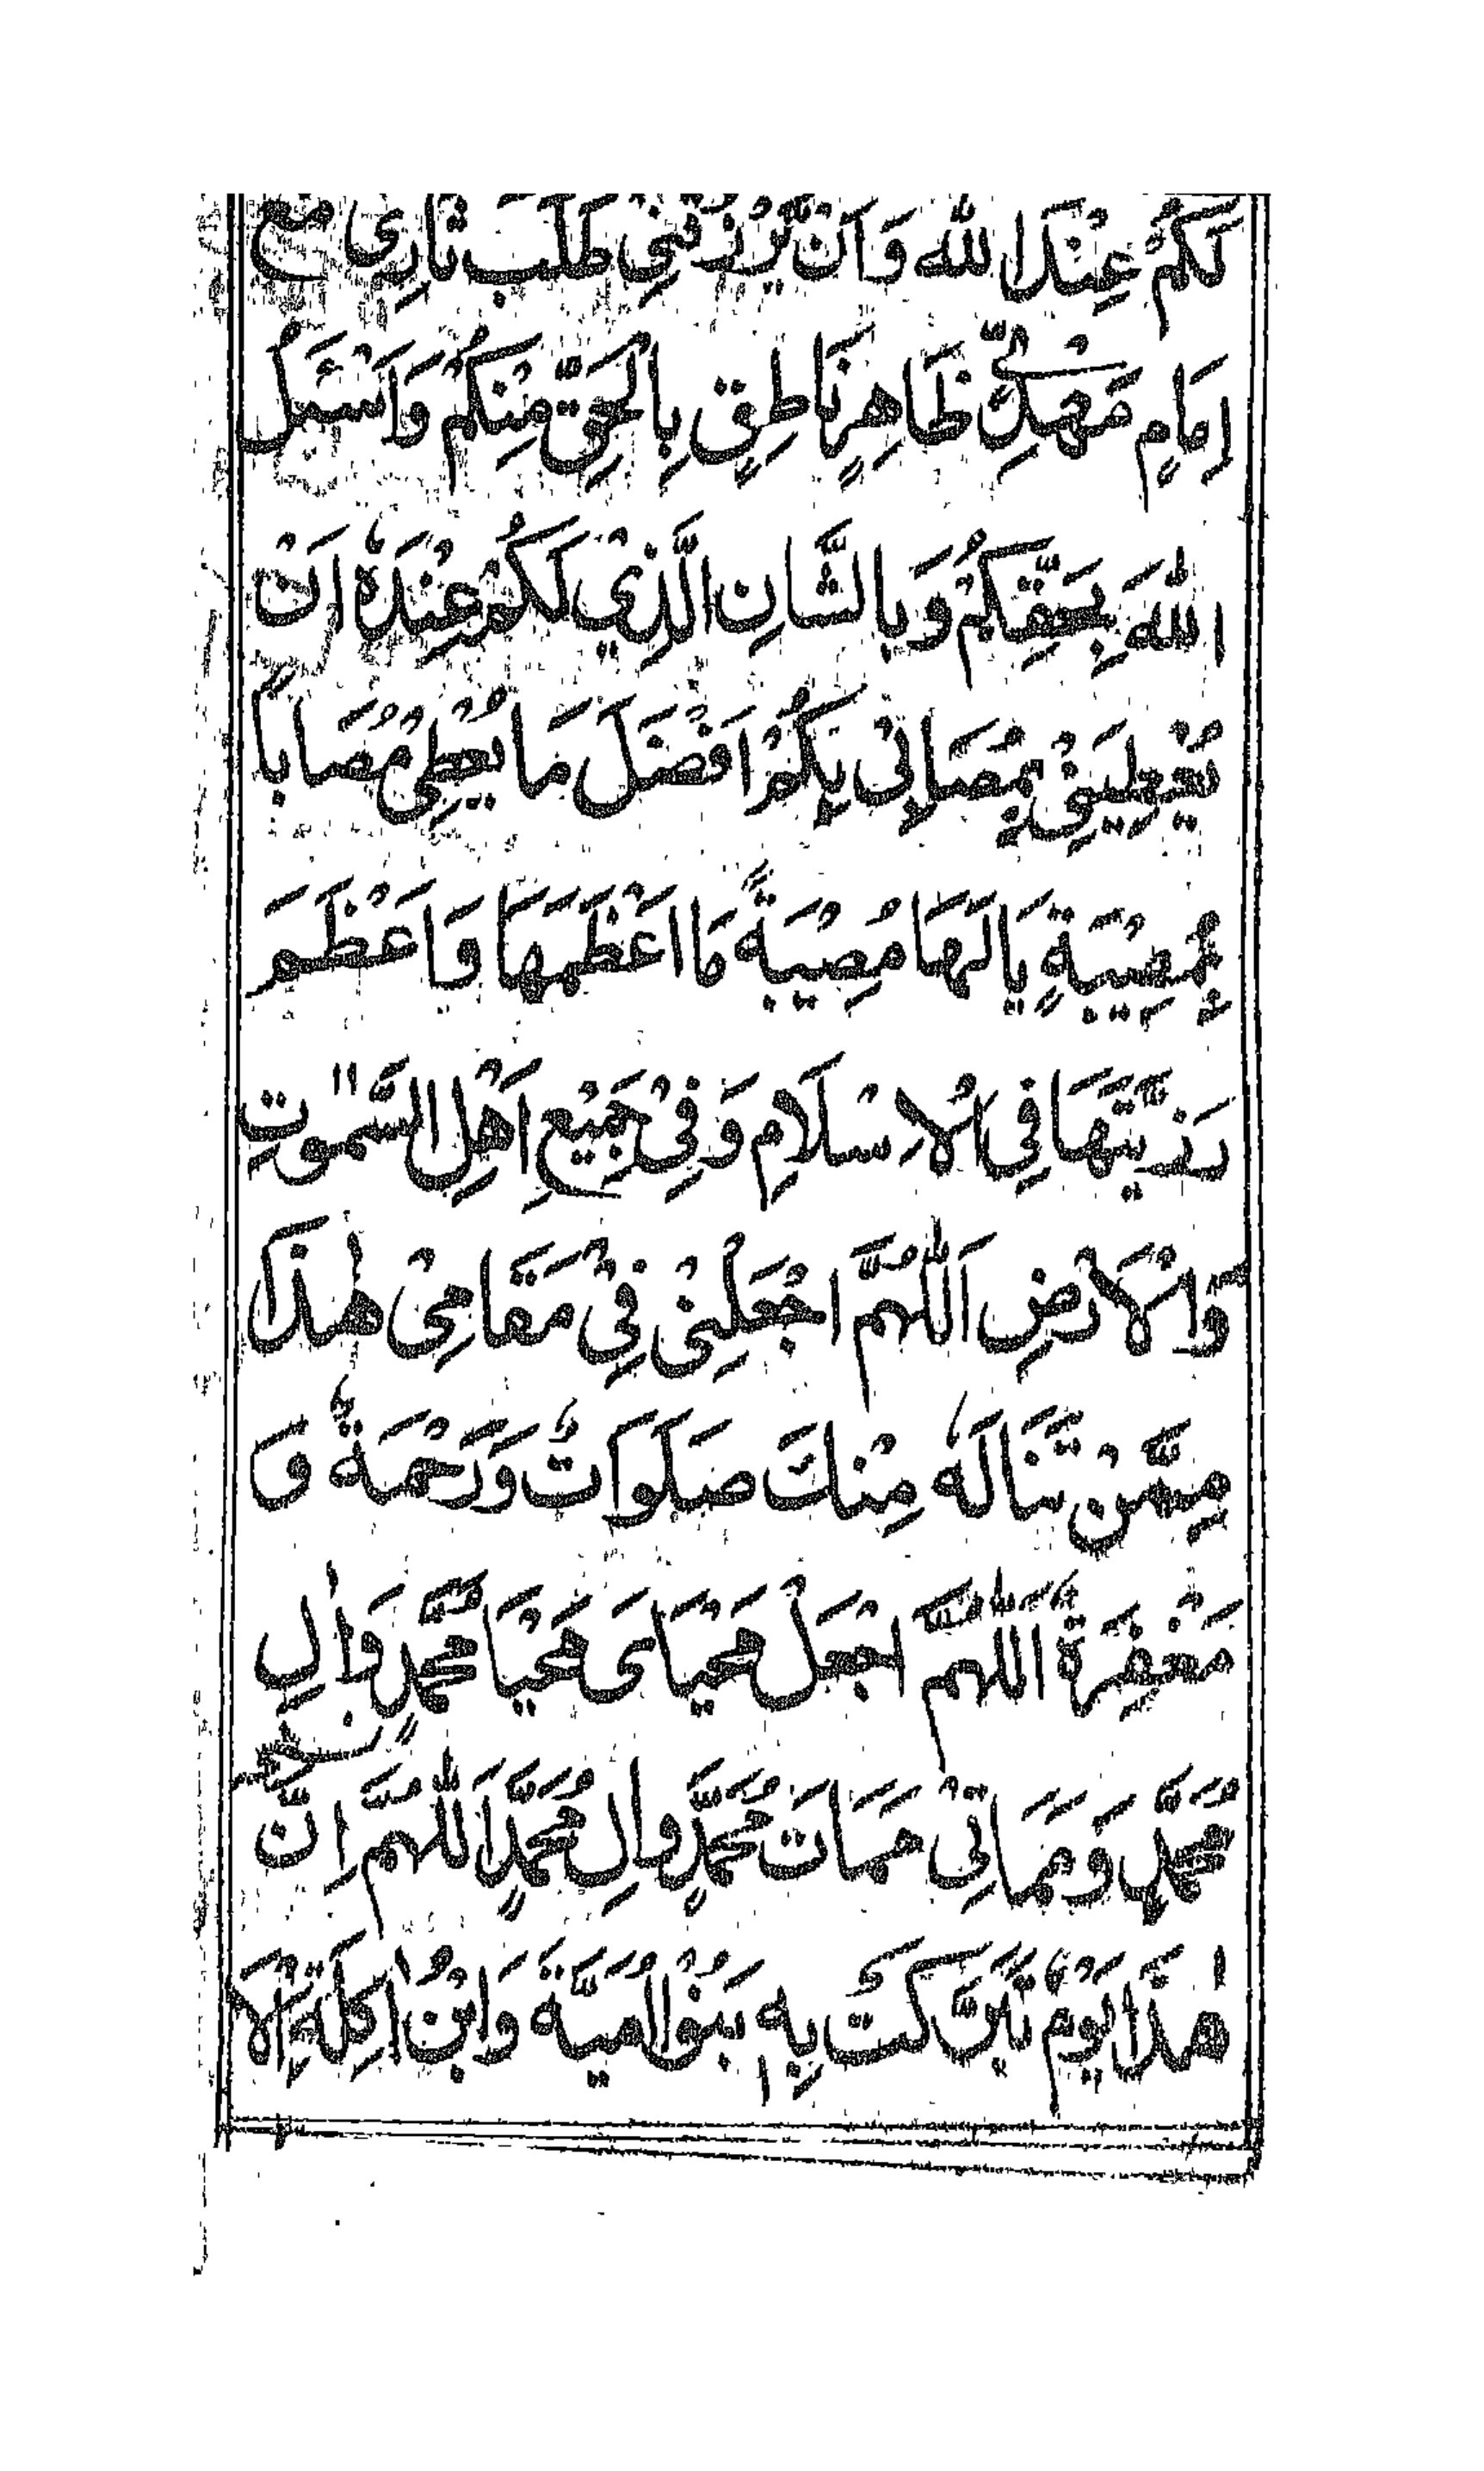 لَكُمْ عِنْدَ اللهِ وَاَنْ يَّرْزُقَنِيْ طَلَبَ ثَارِيْ مَعَ
اِمَامٍ مَهْدِيٍّ ظَاهِرٍ نَاطِقٍ بِالْحَقِّ مِنْكُمْ وَاَسْئَلُ
اللهَ بِحَقِّكُمْ وَبِالشَّانِ الَّذِيْ لَكُمْ عِنْدَهٗ اَنْ
يُعْطِيَنِيْ بِمُصَابِيْ بِكُمْ اَفْضَلَ مَا يُعْطِيْ مُصَابًا
بِمُصِيْبَةٍ يَالَهَا مُصِيْبَةً مَا اَعْظَمَهَا وَاَعْظَمَ
رَزِيَّتَهَا فِي الْاِسْلَامِ وَفِيْ جَمِيْعِ اَهْلِ السَّمٰوٰتِ
وَالْاَرْضِ اَللّٰهُمَّ اجْعَلْنِيْ فِيْ مَقَامِيْ هٰذَا
مِمَّنْ تَنَالُهٗ مِنْكَ صَلَوَاتٌ وَرَحْمَةٌ وَ
مَغْفِرَةٌ اَللّٰهُمَّ اجْعَلْ مَحْيَايَ مَحْيَا مُحَمَّدٍ وَاٰلِ
مُحَمَّدٍ وَمَمَاتِيْ مَمَاتَ مُحَمَّدٍ وَاٰلِ مُحَمَّدٍ اَللّٰهُمَّ اِنَّ
هٰذَا يَوْمٌ تَبَرَّكَتْ بِهٖ بَنُوْ اُمَيَّةَ وَابْنُ اٰكِلَةِ الْاَ